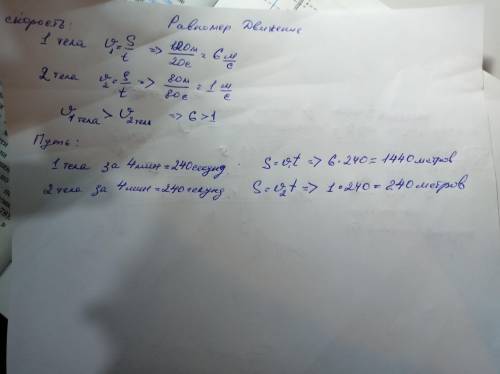 скорость: Равномер Движение
1 тела v₁ = S/t => 120м/20с = 6 м/с
2 тела v₂ = S/t => 80м/80с = 1 м/с
v₁ тела > v₂ тела => 6 > 1
Путь:
1 тела за 4 мин = 240 секунд. S = v₁t => 6 · 240 = 1440 метров
2 тела за 4 мин = 240 секунд S = v₂t => 1 · 240 = 240 метров